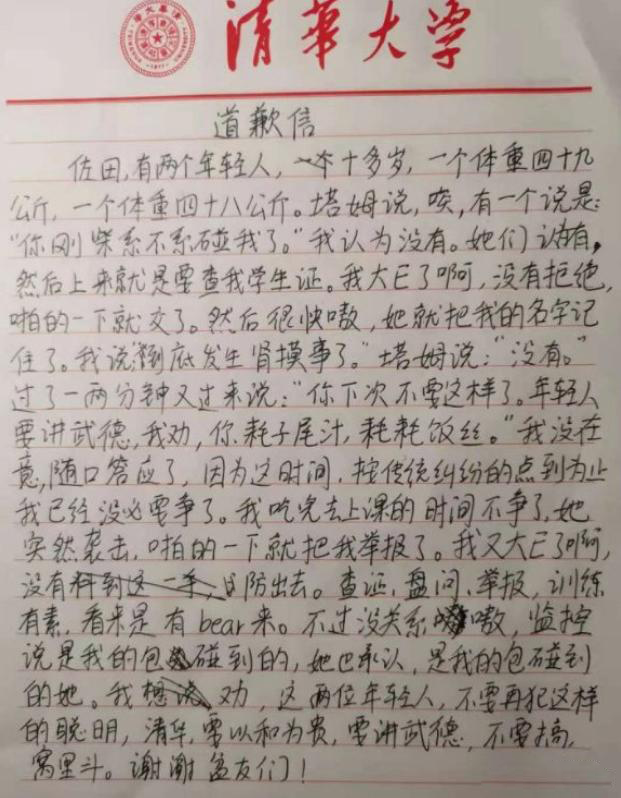 清華大学
道歉信
佐田,有两个年轻人,一个十多岁,一个体重四十九
公斤,一个体重四十八公斤。塔姆说,唉,有一个说是:
“你刚柴系不系碰我了。”我认为没有。她们认为有,
然后上来就是要查我学生证。我大E了啊,没有拒绝,
啪的一下就交了。然后很快嗷,她就把我的名字记
住了。我说“到底发生肾摸事了。”塔姆说:“没有。”
过了一两分钟又过来说:“你下次不要这样了。年轻人
要讲武德,我劝,你耗子尾汁,耗耗饭丝。”我没在
意,随口答应了,因为这时间,按传统纠纷的点到为止
我已经没必要争了。我吃完去上课的时间不争了,她
突然袭击,啪的一下就把我举报了。我又大E了啊,
没有防出去。查证,盘问,举报,训练
有素,看来是有bear来。不过没关系嗷,监控
说是我的包碰到的,她也承认,是我的包碰到
的她。我劝,这两位年轻人,不要再犯这样
的聪明,清华,要以和为贵,要讲武德,不要搞,
窝里斗。谢谢盆友们!